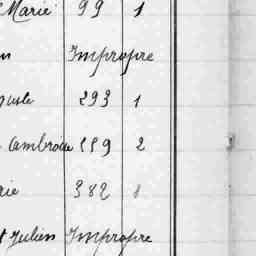 Marie 99 1
Impropre
293 1
Ambroise 119 2
382
t Julien Impropre